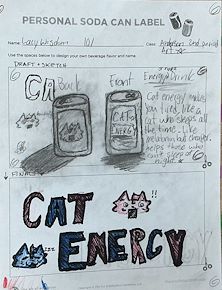 PERSONAL SODA CAN LABEL
Name: Lacy Wisdom 101
Class:
Art
Use the spaces below to design your own beverage flavor and name.
DRAFT + SKETCH
CA Back Front Energy Drink
Cat energy makes
you tired, like a
cat who sleeps all
the time. Like
melatonin but cheaper
helps those who
can't sleep at
night.
CAT
ENERGY
FINAL
CAT !!
zzz ENERGY